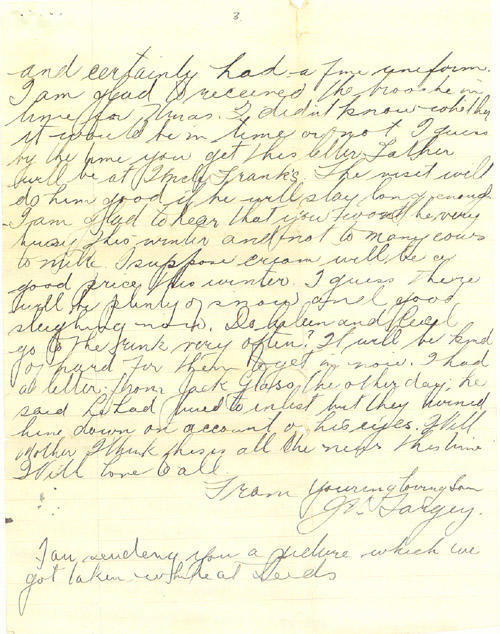 3
and certainly had a fine uniform.
I am glad received the broshe in
time for Xmas. I didn't know whether
it would be in time or not I guess
by the time you get this letter Father
will be at Uncle Frank's. The visit will
do him good if he will stay long enough
I am glad to hear that you wont be very
busy this winter and not to many cows
to milk. I suppose cream will be a
good price this winter. I guess there
will be plenty of snow and good
sleighing now. Do and
go to the rink very often? It will be kind
of hard for them to get in now. I had
a letter from Jack Glass the other day; he
said had tried to enlist but they turned
him down on account of his eyes. Well
Mother I think this is all the news this time
Will love to all.
From Your loving Son
Fargey.
I am sending you a picture which we
got taken while at Leeds